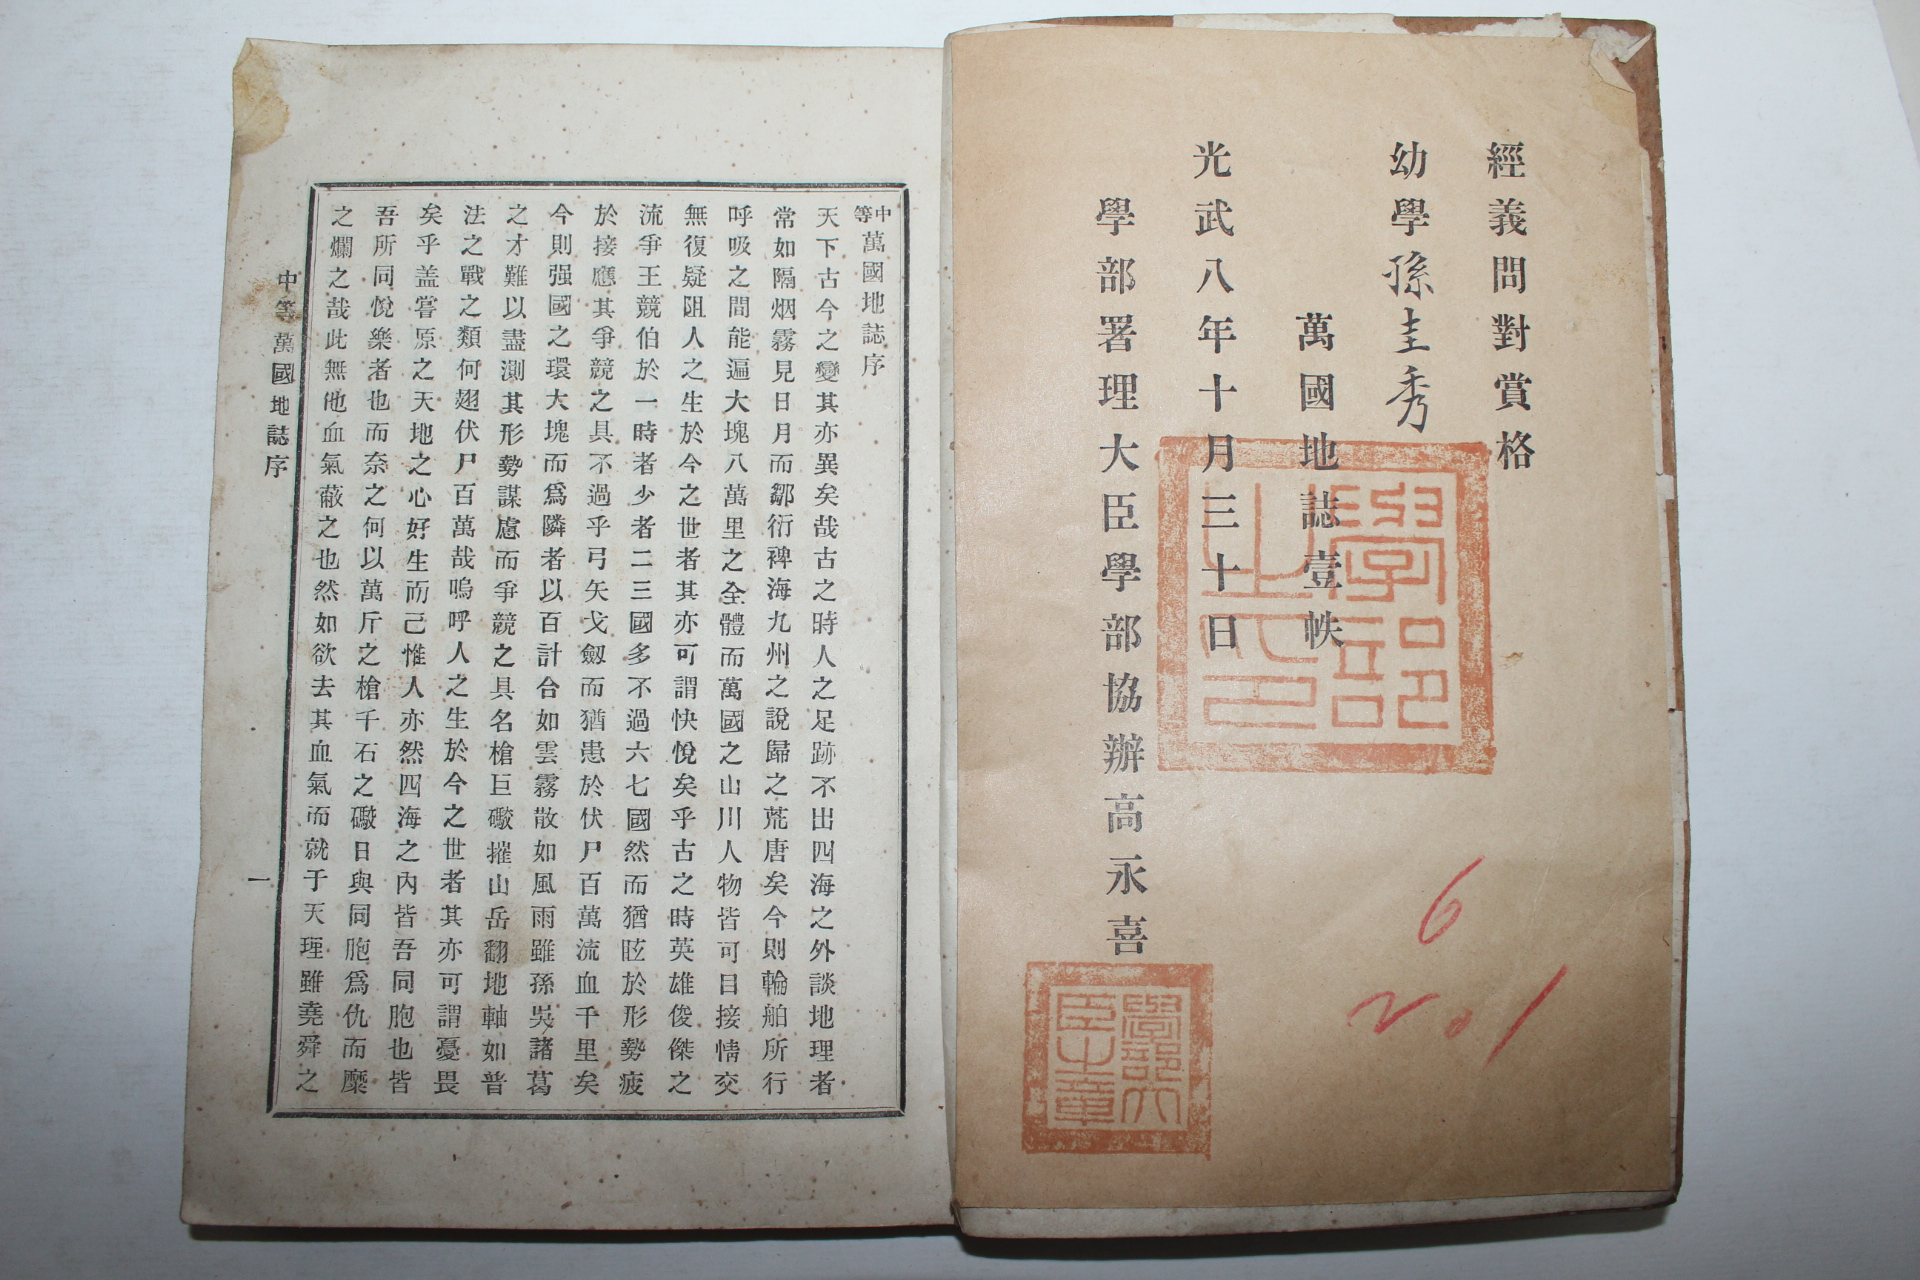 經義問對賞格
幼學孫圭秀
萬國地誌壹帙
光武八年十月三十日
學部署理大臣學部協辦高永喜
學部之印
學部大臣之章
6
201
中等萬國地誌序
天下古今之變其亦異矣哉古之時人之足跡不出四海之外談地理者
常如隔烟霧見日月而鄒衍裨海九州之說歸之荒唐矣今則輪舶所行
呼吸之間能遍大塊八萬里之全體而萬國之山川人物皆可目接情交
無復疑阻人之生於今之世者其亦可謂快悅矣乎古之時英雄俊傑之
流爭王競伯於一時者少者二三國多不過六七國然而猶眩於形勢疲
於接應其爭競之具不過乎弓矢戈劒而猶患於伏尸百萬流血千里矣
今則强國之環大塊而爲隣者以百計合如雲霧散如風雨雖孫吳諸葛
之才難以盡測其形勢謀慮而爭競之具名槍巨礮摧山岳翻地軸如普
法之戰之類何翅伏尸百萬哉嗚呼人之生於今之世者其亦可謂憂畏
矣乎盖嘗原之天地之心好生而己惟人亦然四海之內皆吾同胞也皆
吾所同悅樂者也而奈之何以萬斤之槍千石之礮日與同胞爲仇而糜
之爛之哉此無他血氣蔽之也然如欲去其血氣而就于天理雖堯舜之
中等萬國地誌序
一